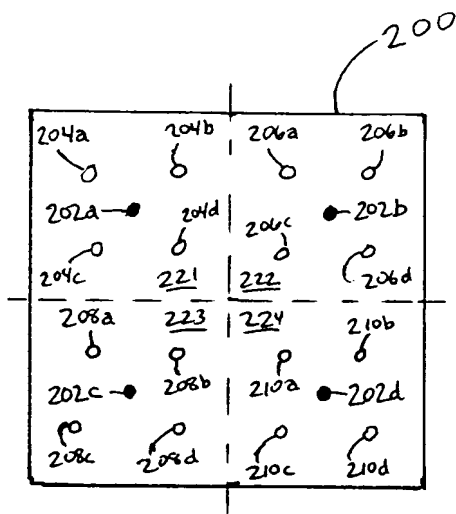 200
204a 204b 206a 206b
202a 204d 206c 202b
204c 221 222 206d
208a 223 224 210b
202c 208b 210a 202d
208c 208d 210c 210d